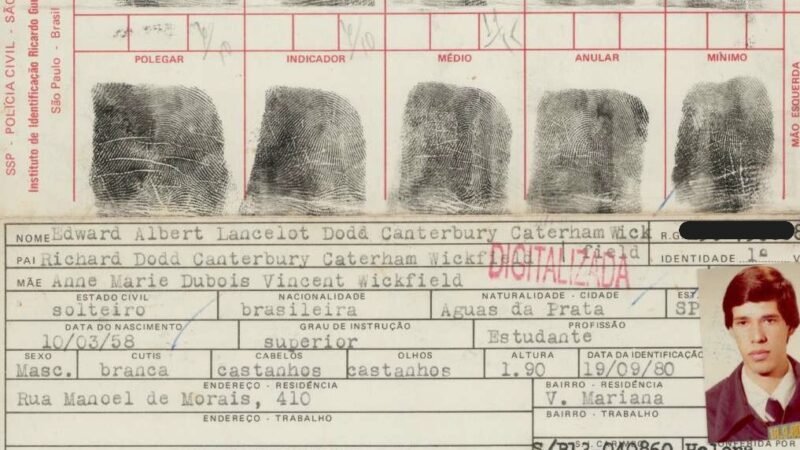 POLEGAR INDICADOR MÉDIO ANULAR MÍNIMO
SSP - POLÍCIA CIVIL - SÃO
Instituto de Identificação Ricardo Gu
São Paulo - Brasil
MÃO ESQUERDA
NOME Edward Albert Lancelot Dodd Canterbury Caterham Wick R.G.
field
PAI Richard Dodd Canterbury Caterham Wickfield IDENTIDADE 1ª V
DIGITALIZADA
MÃE Anne Marie Dubois Vincent Wickfield
ESTADO CIVIL NACIONALIDADE NATURALIDADE - CIDADE EST
solteiro brasileira Aguas da Prata SP
DATA DO NASCIMENTO GRAU DE INSTRUÇÃO PROFISSÃO
10/03/58 superior Estudante
SEXO CUTIS CABELOS OLHOS ALTURA DATA DA IDENTIFICAÇÃO
Masc. branca castanhos castanhos 1.90 19/09/80
ENDEREÇO - RESIDÊNCIA BAIRRO - RESIDÊNCIA
Rua Manoel de Morais, 410 V. Mariana
ENDEREÇO - TRABALHO BAIRRO - TRABALHO
CONFERIDA POR